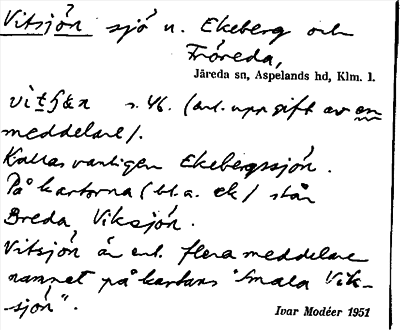 Vitsjön sjö n. Ekeberg och
Fröreda,
Järeda sn, Aspelands hd, Klm. l.
s. 46. (enl. uppgift av en
meddelare).
Kallas vanligen Ekebergssjön.
På kartorna (bl.a. ek) står
Breda Viksjön.
Vitsjön är enl. flera meddelare
namnet på kartans "Smala Vik-
sjön".
Ivar Modéer 1951